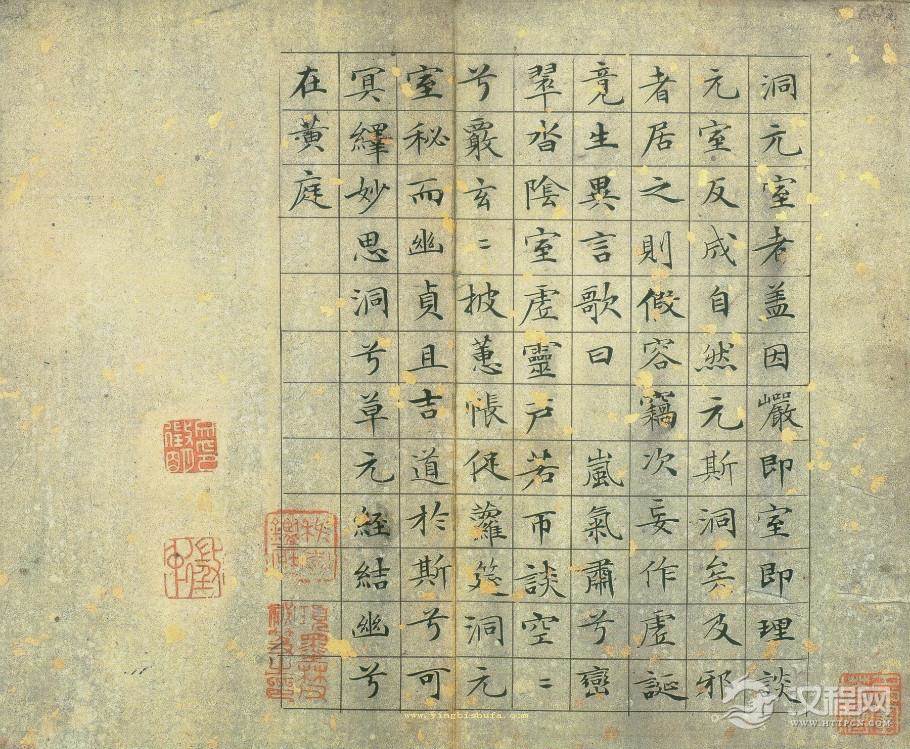 洞元室者盖因巖即室即理談
元室反成自然元斯洞矣及邪
者居之則假容竊次妄作虛誕
竟生異言歌曰 嵐氣肅兮巒
翠沓陰室虛靈戶若帀談空〻
兮覈玄〻披蕙帳促蘿筵洞元
室秘而幽貞且吉道於斯兮可
冥繹妙思洞兮草元經結幽兮
在黃庭
www.yingbishufa.com
汉程网
WWW.HTTPCN.COM